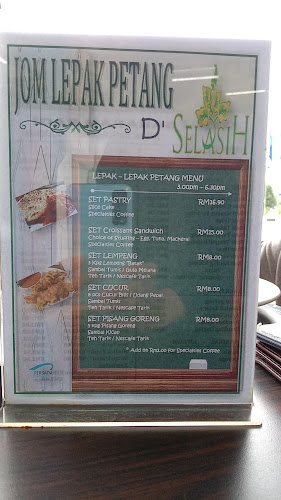 JOM LEPAK PETANG
D' SELASIH
LEPAK - LEPAK PETANG MENU
3.00pm - 6.30pm
SET PASTRY RM16.90
Slice Cake
Specialties Coffee
SET Croissant Sandwich RM15.00
Choice of Stuffing - Egg, Tuna, Mackerel
Specialties Coffee
SET LEMPENG RM8.00
Sambal Tumis / Gula Melaka
Teh Tarik / Nescafe Tarik
SET CUCUR RM8.00
Sambal Tumis
Teh Tarik / Nescafe Tarik
SET PISANG GORENG RM8.00
Pisang Goreng
Sambal Kicap
Teh Tarik / Nescafe Tarik
* Add on RM2.00 for Specialties Coffee